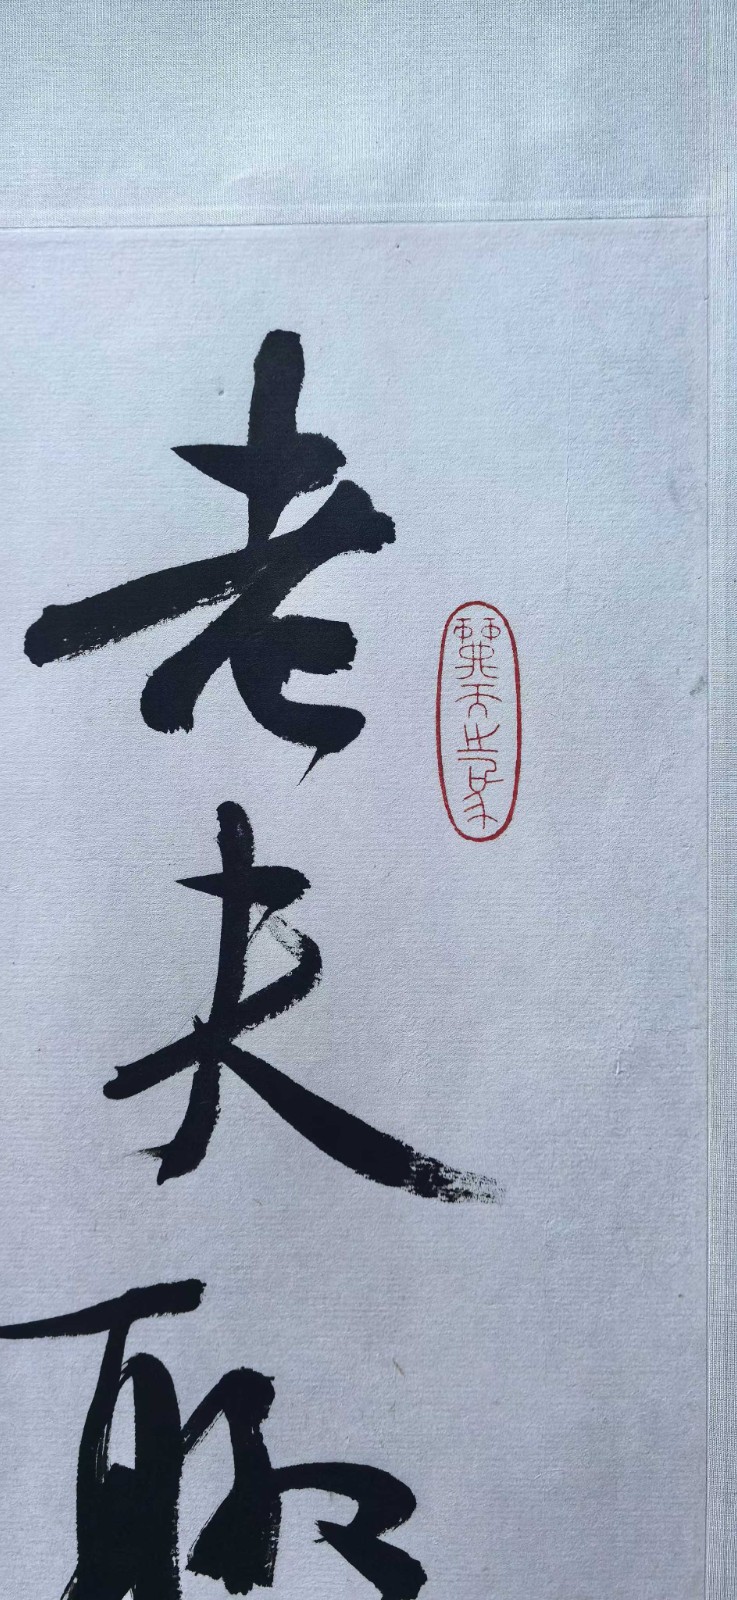 老夫聊